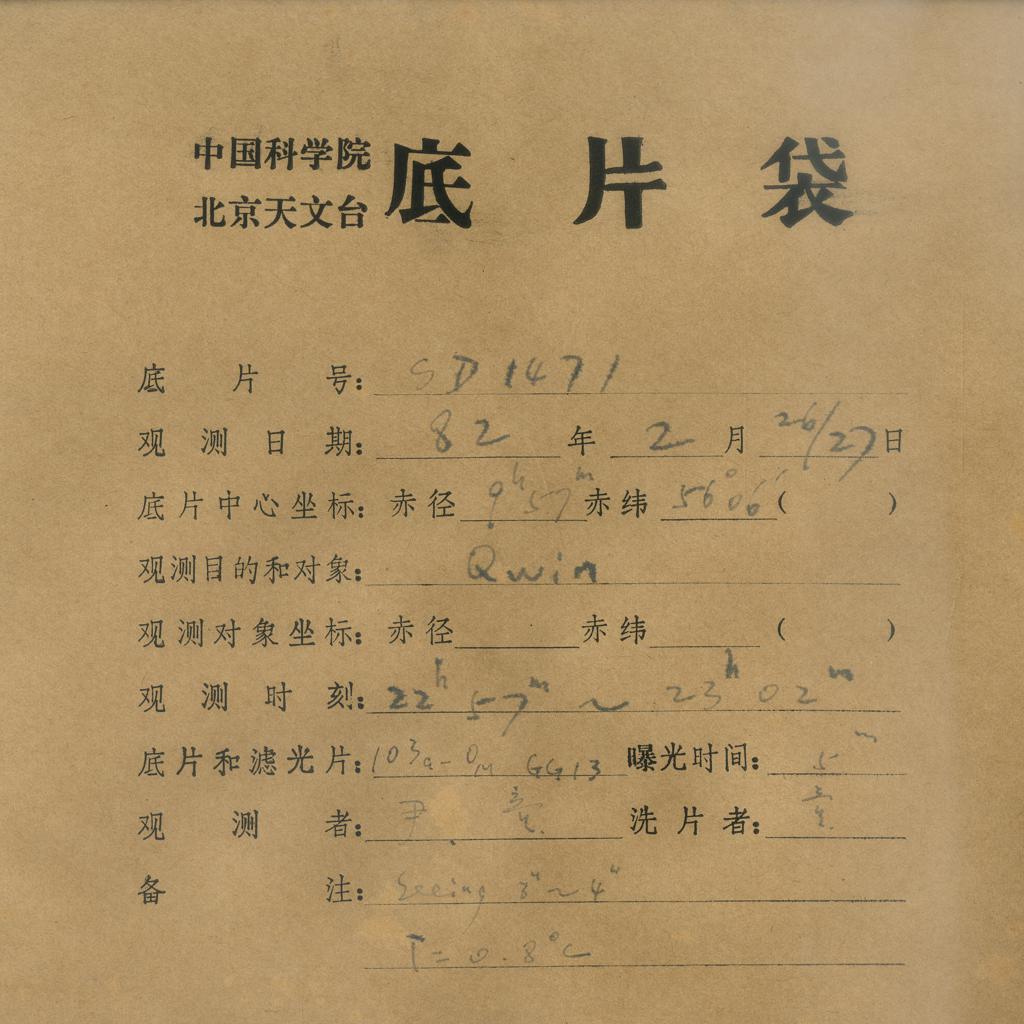 中国科学院
北京天文台
底片袋
底片号：SD 1471
观测日期：82年2月26/27日
底片中心坐标：赤径9h57m赤纬56°06′（ ）
观测目的和对象：Qwin
观测对象坐标：赤径 赤纬 （ ）
观测时刻：22h 57m ~ 23h 02m
底片和滤光片：103a-O GG13 曝光时间：5m
观测者：尹 洗片者：
备注：Seeing 3" ~ 4"
T = 0.8°C